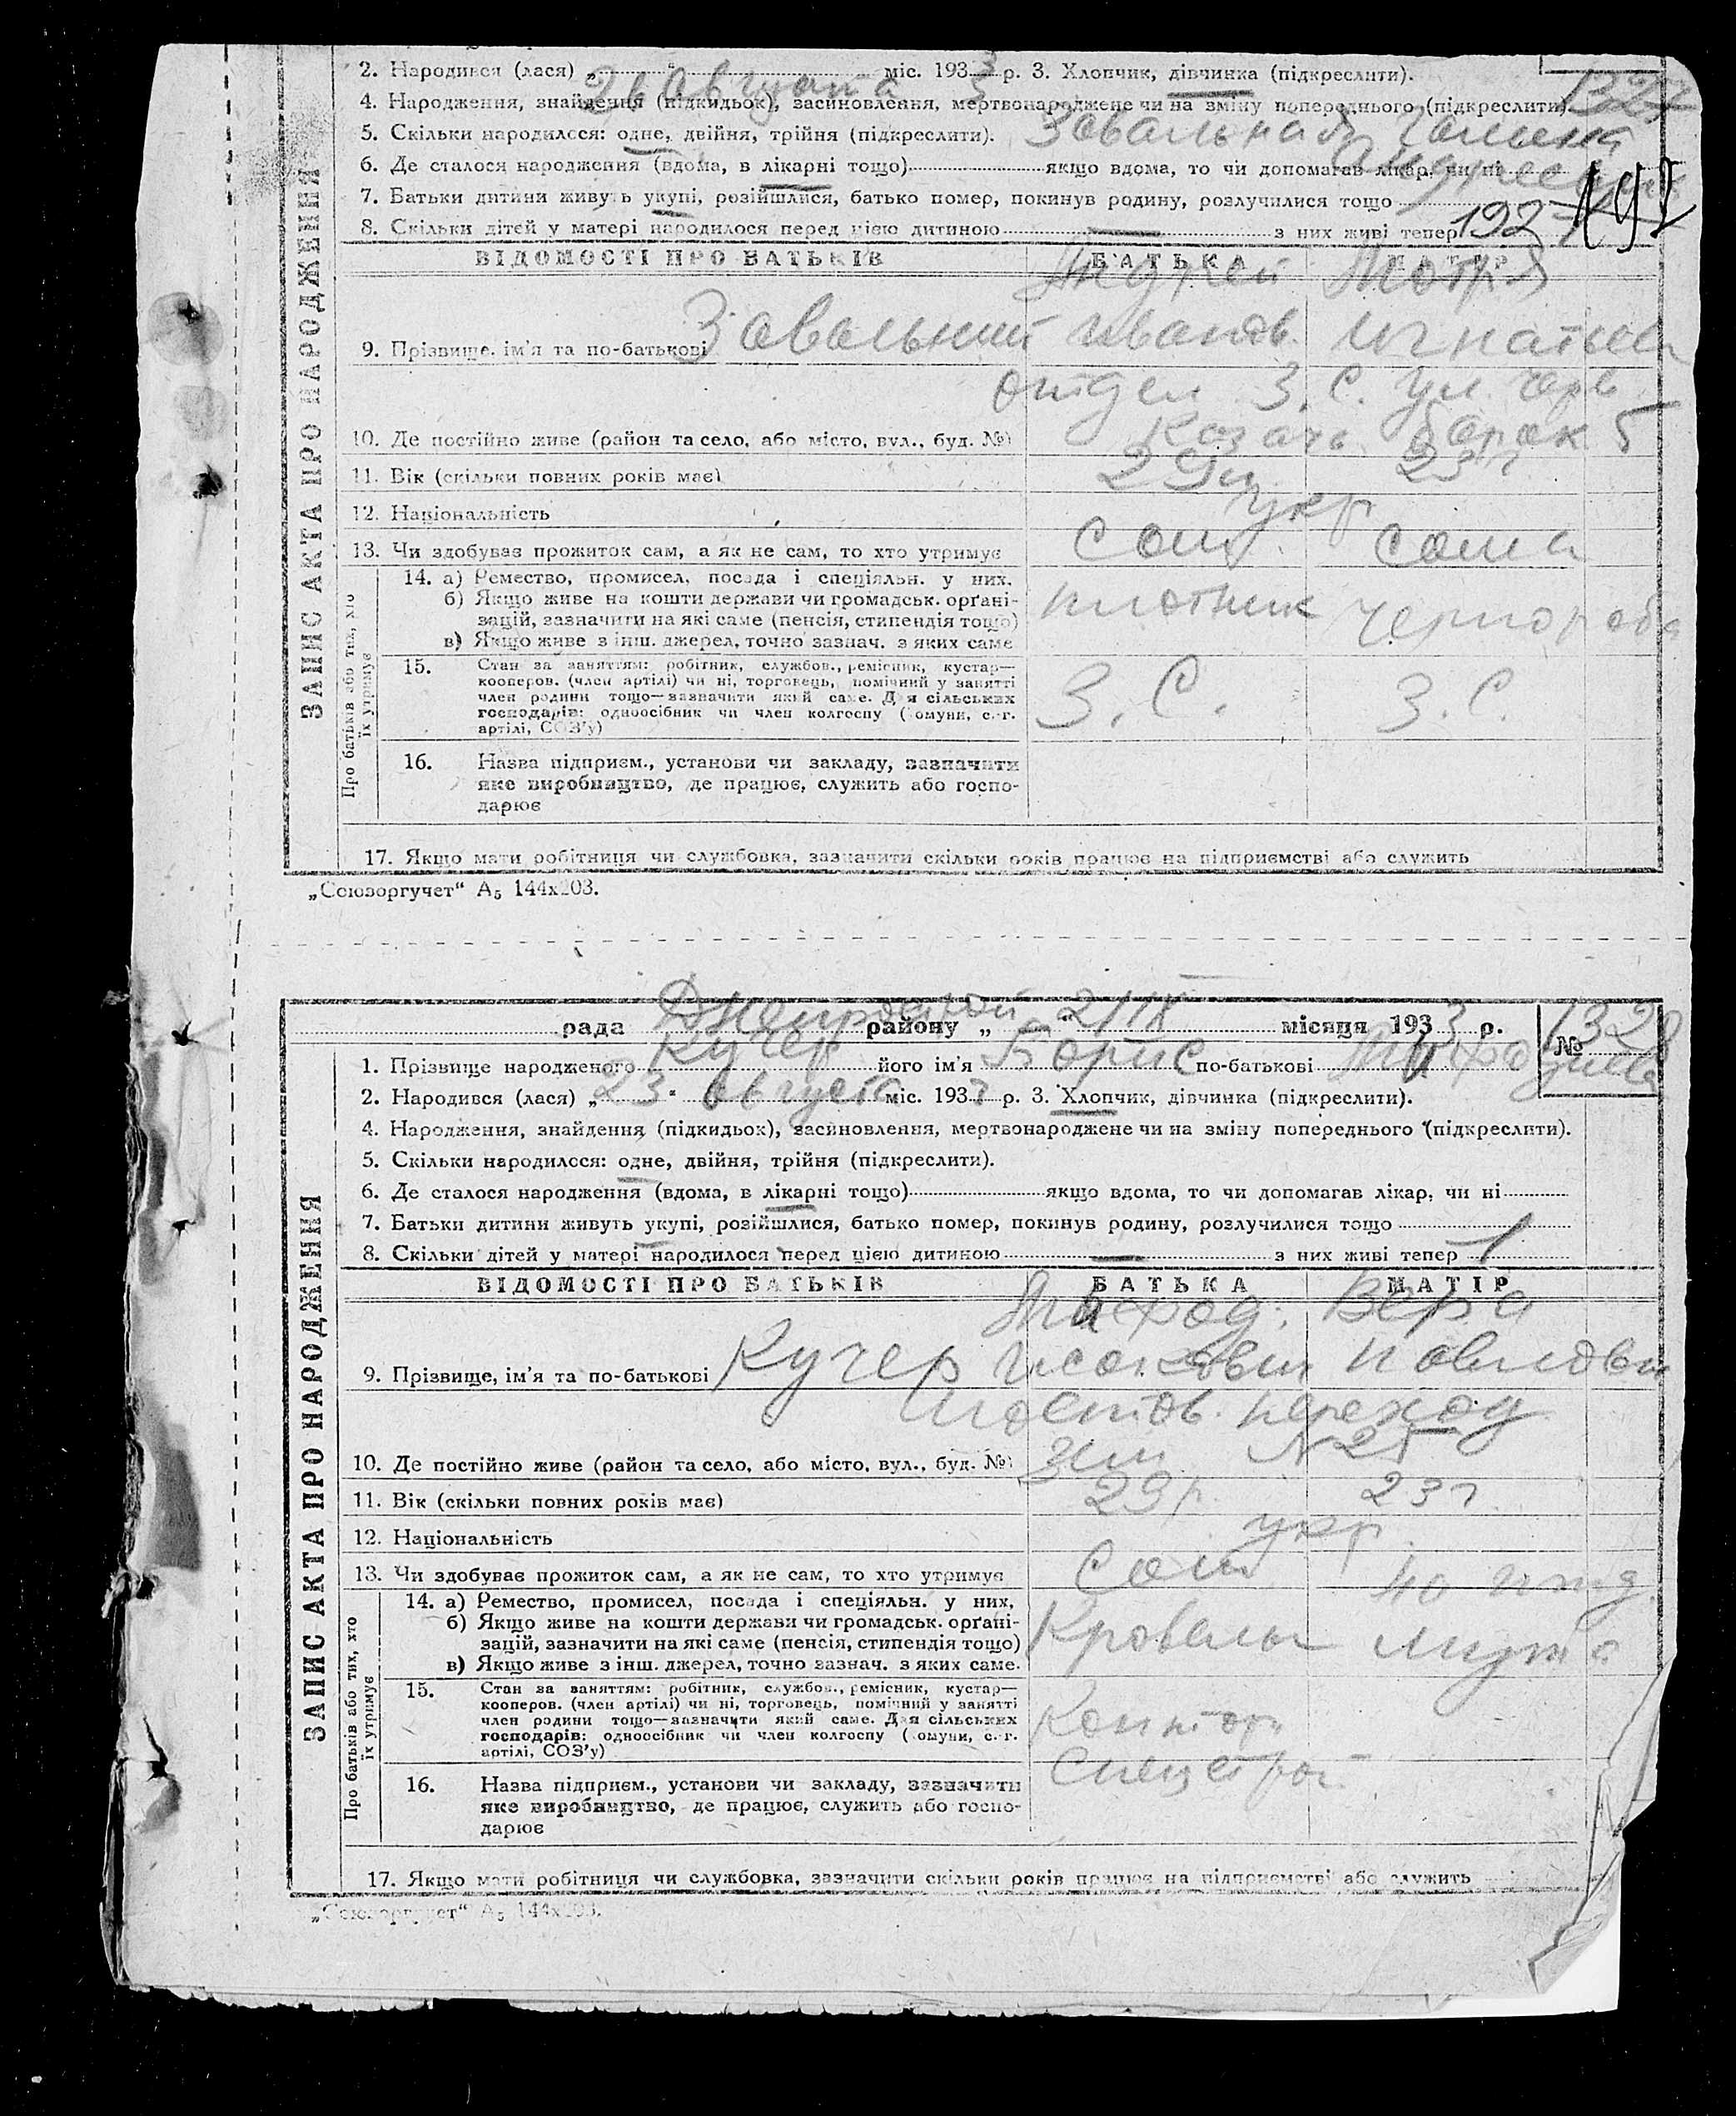 2. Народився (лася) „ 26 августа " міс. 1933 р. 3. Хлопчик, дівчинка (підкреслити).
4. Народження, знайдення (підкидьок), засиновлення, мертвонароджене чи на зміну попереднього (підкреслити). 1327
5. Скільки народилося: одне, двійня, трійня (підкреслити). Завальна Галина
6. Де сталося народження (вдома, в лікарні тощо) якщо вдома, то чи допомагав лікар, чи ні
7. Батьки дитини живуть укупі, розійшлися, батько помер, покинув родину, розлучилися тощо
8. Скільки дітей у матері народилося перед цією дитиною — з них живі тепер 192
ВІДОМОСТІ ПРО БАТЬКІВ БАТЬКА МАТІР
Андрей Мотря
9. Прізвище, ім'я та по-батькові Завальний Иванов. Игнатьев
отдел З.С. ул. Черв.
10. Де постійно живе (район та село, або місто, вул., буд. №) Козач. барак 5
11. Вік (скільки повних років має) 29 23 г
12. Національність укр
13. Чи здобуває прожиток сам, а як не сам, то хто утримує сам. сама
14. а) Ремество, промисел, посада і спеціяльн. у них.
б) Якщо живе на кошти держави чи громадськ. орґані-
зацій, зазначити на які саме (пенсія, стипендія тощо) плотник чернораб
в) Якщо живе з інш. джерел, точно зазнач. з яких саме
15. Стан за заняттям: робітник, службов., ремісник, кустар—
кооперов. (член артілі) чи ні, торговець, помічний у занятті
член родини тощо—зазначити який саме. Для сільських
господарів: одноосібник чи член колгоспу (комуни, с.-г.
артілі, СОЗ'у) З.С. З.С.
16. Назва підприєм., установи чи закладу, зазначити
яке виробництво, де працює, служить або госпо-
дарює
17. Якщо мати робітниця чи службовка, зазначити скільки років працює на підприємстві або служить
ЗАПИС АКТА ПРО НАРОДЖЕННЯ
Про батьків або тих, хто
їх утримує
„Союзоргучет“ А5 144х203.
рада Днепрострой району „ 2/IX " місяця 1933 р. № 1328
1. Прізвище народженого Кучер його ім'я Борис по-батькові
2. Народився (лася) „ 23 " августа міс. 1933 р. 3. Хлопчик, дівчинка (підкреслити).
4. Народження, знайдення (підкидьок), засиновлення, мертвонароджене чи на зміну попереднього (підкреслити).
5. Скільки народилося: одне, двійня, трійня (підкреслити).
6. Де сталося народження (вдома, в лікарні тощо) якщо вдома, то чи допомагав лікар, чи ні
7. Батьки дитини живуть укупі, розійшлися, батько помер, покинув родину, розлучилися тощо
8. Скільки дітей у матері народилося перед цією дитиною — з них живі тепер 1
ВІДОМОСТІ ПРО БАТЬКІВ БАТЬКА МАТІР
Вера
9. Прізвище, ім'я та по-батькові Кучер Исакович Павловн
Мостов. переход
10. Де постійно живе (район та село, або місто, вул., буд. №) зем N 25
11. Вік (скільки повних років має) 29 р. 23 г.
12. Національність укр.
13. Чи здобуває прожиток сам, а як не сам, то хто утримує сам на ижд.
14. а) Ремество, промисел, посада і спеціяльн. у них.
б) Якщо живе на кошти держави чи громадськ. орґані-
зацій, зазначити на які саме (пенсія, стипендія тощо) Кровельщ мужа
в) Якщо живе з інш. джерел, точно зазнач. з яких саме.
15. Стан за заняттям: робітник, службов., ремісник, кустар—
кооперов. (член артілі) чи ні, торговець, помічний у занятті
член родини тощо—зазначити який саме. Для сільських
господарів: одноосібник чи член колгоспу (комуни, с.-г.
артілі, СОЗ'у)
Спецстрой
16. Назва підприєм., установи чи закладу, зазначити
яке виробництво, де працює, служить або госпо-
дарює
17. Якщо мати робітниця чи службовка, зазначити скільки років працює на підприємстві або служить
ЗАПИС АКТА ПРО НАРОДЖЕННЯ
Про батьків або тих, хто
їх утримує
„Союзоргучет“ А5 144х203.